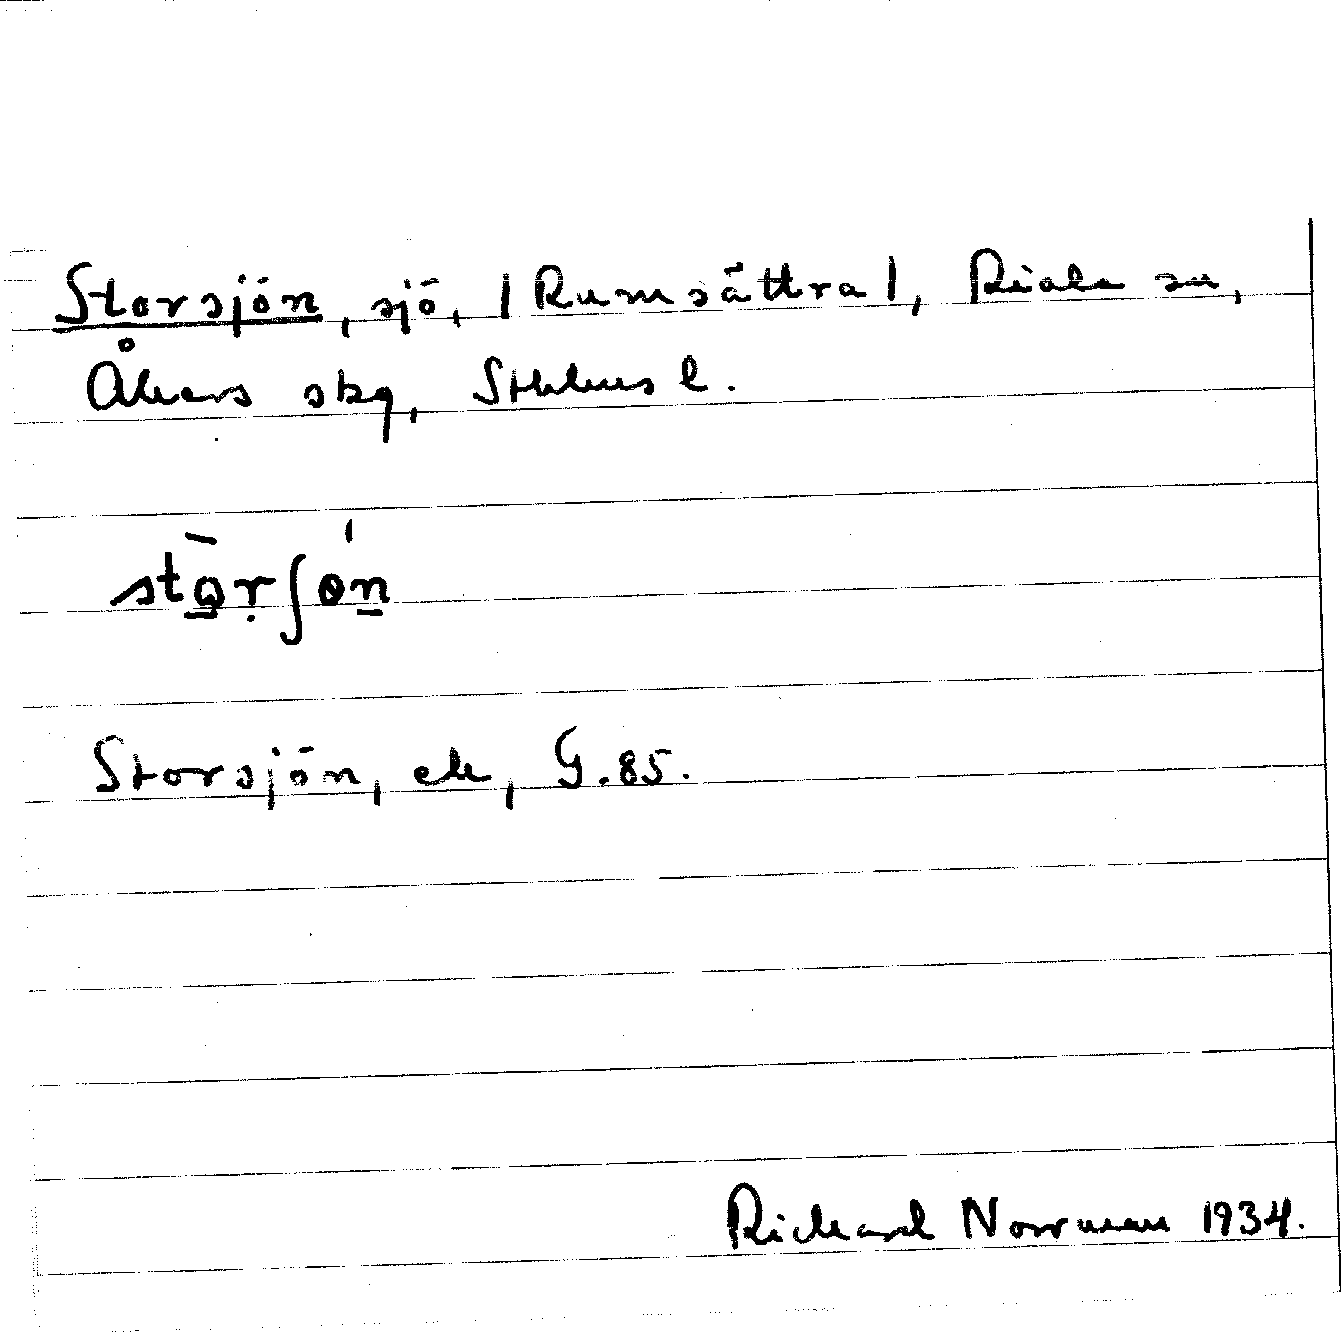 Storsjön, sjö, /Rumsättra/, Riala sn,
Åkers skg, Sthlms l.
stọ̀rʃǿn
Storsjön, ek, G.85.
Richard Norrman 1934.